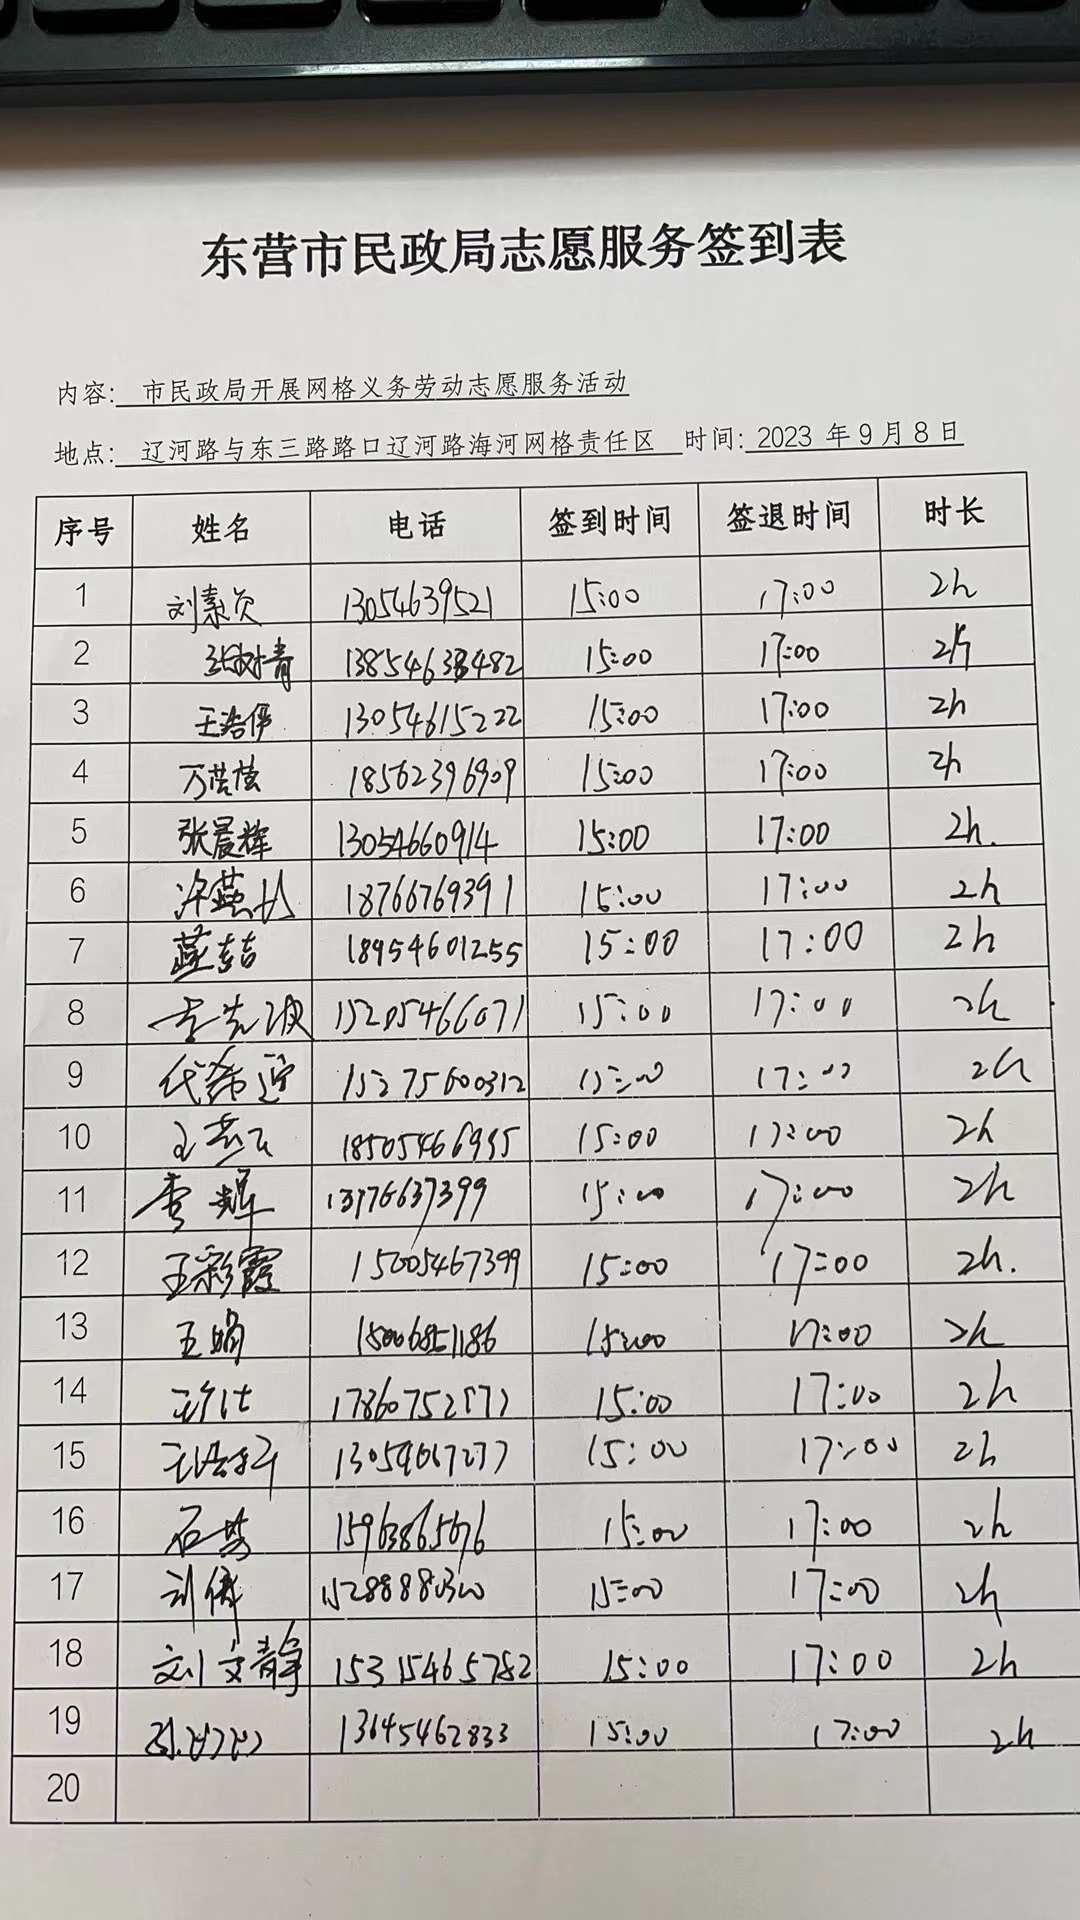 东营市民政局志愿服务签到表
内容: 市民政局开展网格义务劳动志愿服务活动
地点: 辽河路与东三路路口辽河路海河网格责任区 时间: 2023 年 9 月 8 日
序号 姓名 电话 签到时间 签退时间 时长
1 13054639521 15:00 17:00 2h
2 张树青 15:00 17:00 2h
3 王浩伊 13054615222 15:00 17:00 2h
4 万莹莹 18562396909 15:00 17:00 2h
5 张晨辉 13054660914 15:00 17:00 2h.
6 18766769391 15:00 17:00 2h
7 18954601255 15:00 17:00 2h
8 15205466071 15:00 17:00 2h
9 15275600312 15:00 17:00 2h
10 15:00 17:00 2h
11 李辉 15:00 17:00 2h
12 王彩霞 15005467399 15:00 17:00 2h.
13 王娟 15006851186 15:00 17:00 2h
14 15:00 17:00 2h
15 15:00 17:00 2h
16 石芸 15963865676 15:00 17:00 2h
17 刘倩 15:00 17:00 2h
18 刘文静 15315465782 15:00 17:00 2h
19 13645462833 15:00 17:00 2h
20